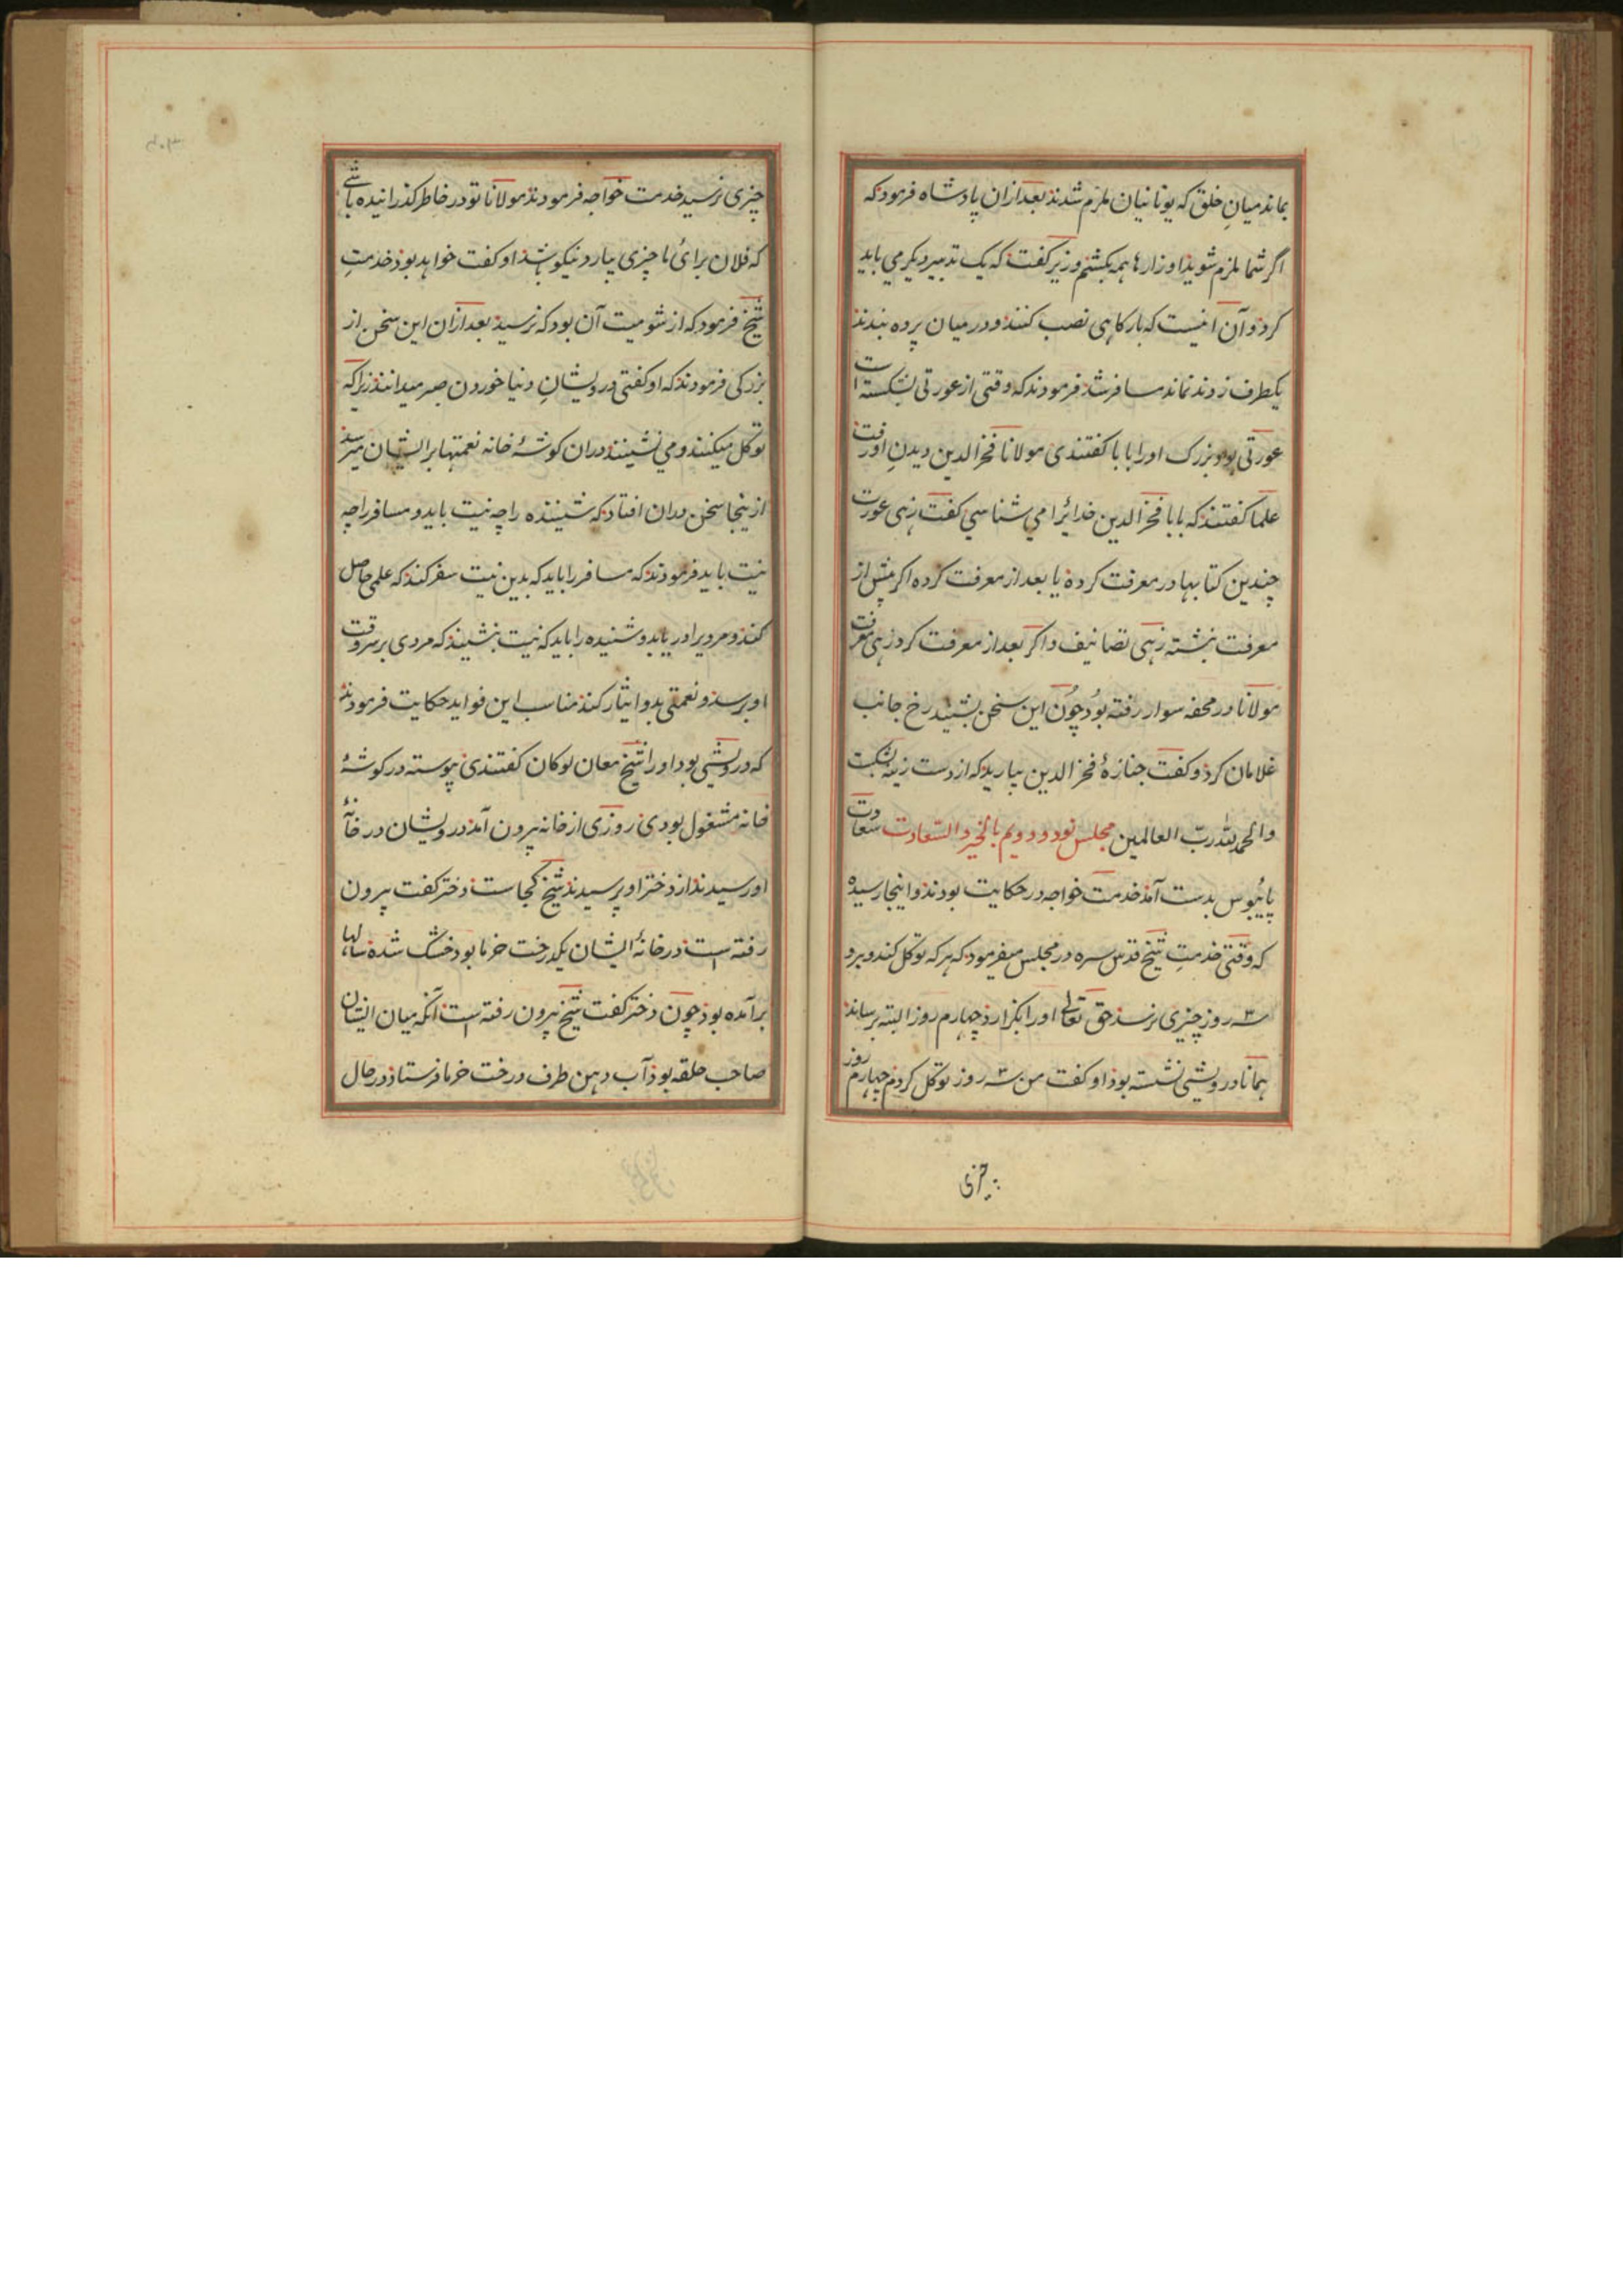 بماند میان خلق که یونانیان ملزم شدند بعد ازان پادشاه فرمود که
اگر شما ملزم شوید اوزارها همه بکشم وزیر کفت که یک تدبیر دیکر می باید
کرد و آن اینست که بارکاهی نصب کنند و درمیان پرده بندند
یکطرف زدند نماند مسافر شد فرمودند که وقتی از عورتی شکسته است
عورتی بود بزرک اورا بابا کفتندی مولانا فخر الدین دیدن او رفت
علما کفتند که بابا فخر الدین خدائرا می شناسی کفت زهی عورت
چندین کتابها در معرفت کرده یا بعد از معرفت کرده اکر پیش از
معرفت نبشته زهی تصانیف و اکر بعد از معرفت کرد زهی معرفت
مولانا در محفه سوار رفته بود چون این سخن بشنید رخ جانب
غلامان کرد و کفت جنازهٔ فخر الدین بیارید که از دست زنی شکست
والحمد لله رب العالمین مجلس نود و دویم بالخیر و السعادت سعادت
پائبوس بدست آمد خدمت خواجه در حکایت بودند و اینجا رسیده
که وقتی خدمت شیخ قدس سره در مجلس میفرمود که هر که توکل کند و برو
سه ۳ روز چیزی نرسد حق تعالی اورا نکزارد چهارم روز البته برساند
همانا درویشی نشسته بود او کفت من سه ۳ روز توکل کردم چهارم روز
چیزی
چیزی نرسید خدمت خواجه فرمودند مولانا تو در خاطر کذرانیده باشی
که فلان برای ما چیزی بیارد نیکو باشد او کفت خواهد بود خدمت
شیخ فرمود که از شومیت آن بود که نرسید بعد ازان این سخن از
بزرکی فرمودند که او کفتی درویشان دنیا خوردن صبر میدانند زیرا که
توکل میکنند و می نشینند دران کوشهٔ خانه نعمتها بر ایشان میرسد
از ینجا سخن دران افتاد که نشیننده را چه نیت باید و مسافر را چه
نیت باید فرمودند که مسافر را باید که بدین نیت سفر کند که علمی حاصل
کند و مردیرا دریابد و نشنیده را باید که نیت بنشیند که مردی بر سروقت
او برسد و نعمتی بدو ایثار کند مناسب این فواید حکایت فرمودند
که درویشی بود اورا شیخ معان لوکان کفتندی پیوسته در کوشهٔ
خانه مشغول بودی روزی از خانه بیرون آمد درویشان در خانهٔ
او رسیدند از دختر او پرسیدند شیخ کجاست دختر کفت بیرون
رفته است در خانهٔ ایشان یکدرخت خرما بود خشک شده سالها
برآمده بود چون دختر کفت شیخ بیرون رفته است آنکه میان ایشان
صاحب حلقه بود آب دهن طرف درخت خرما فرستاد در حال